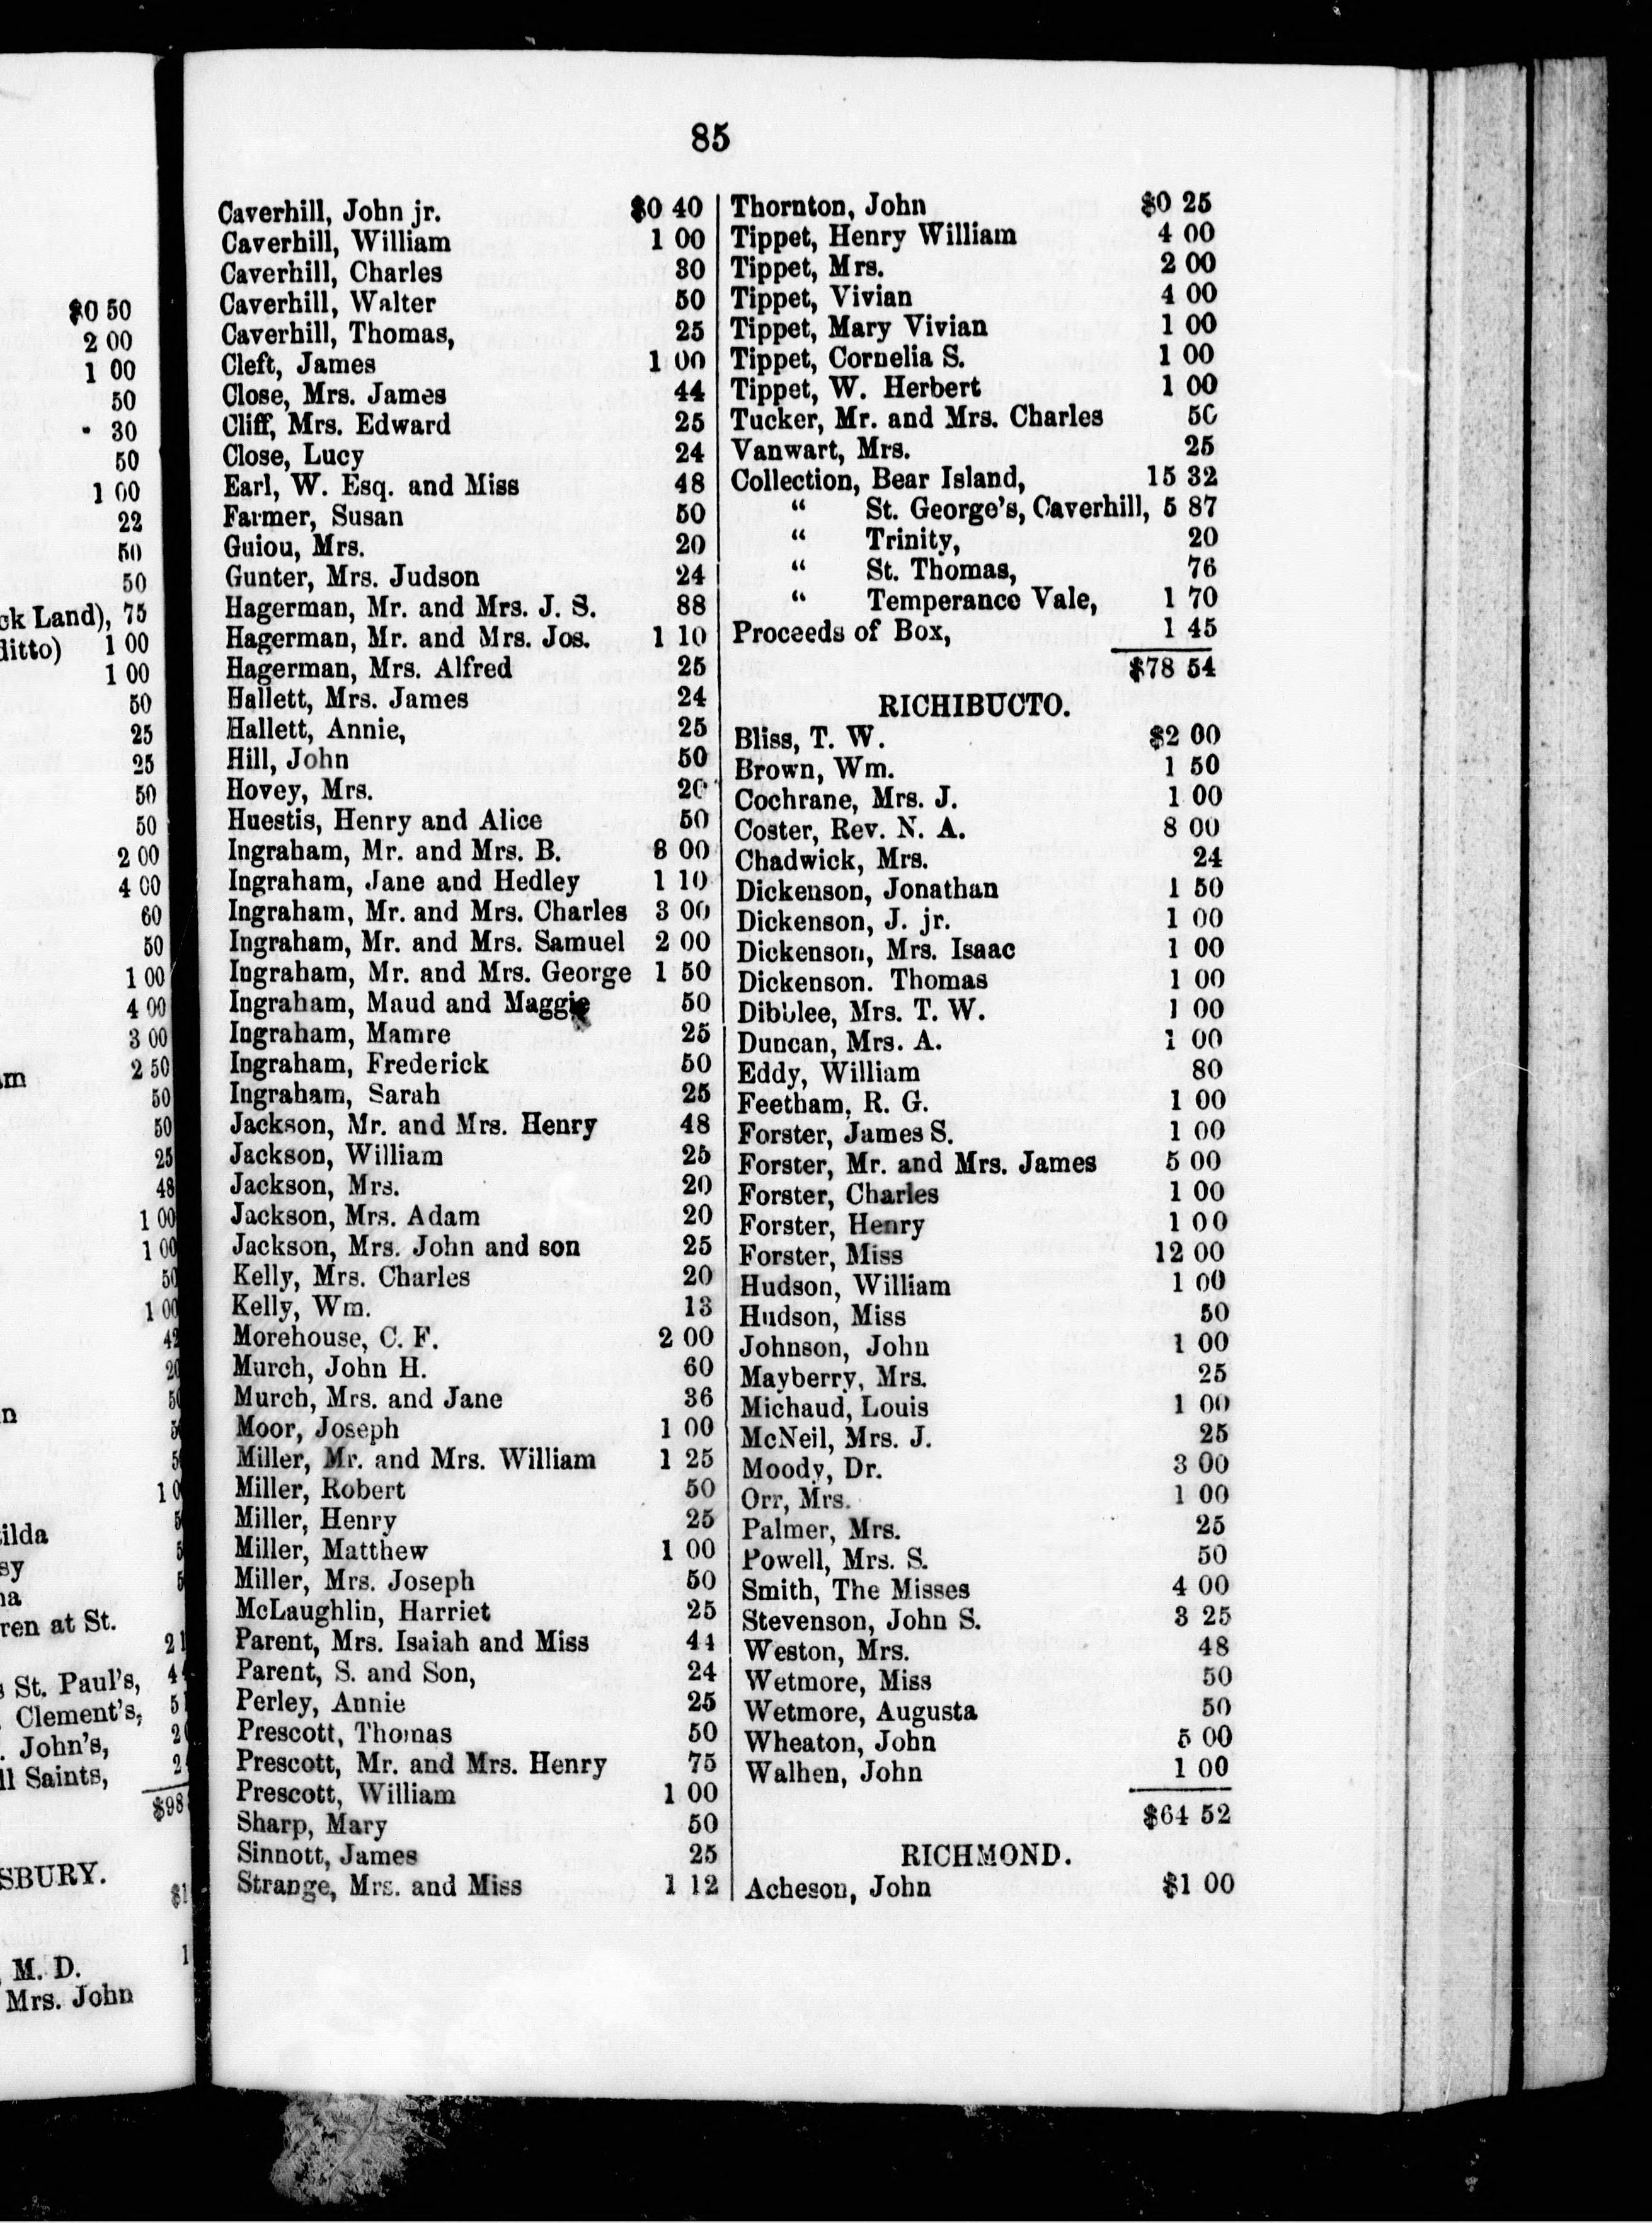 $0 50
2 00
1 00
50
30
50
1 00
22
50
50
ck Land), 75
ditto) 1 00
1 00
50
25
25
50
50
2 00
4 00
60
50
1 00
4 00
3 00
m 2 50
50
50
25
48
1 00
1 00
50
1 00
42
20
n
ilda
sy
na
ren at St.
21
s St. Paul's,
Clement's,
. John's,
ll Saints,
$98
SBURY.
$1
M. D.
Mrs. John
85
Caverhill, John jr. $0 40
Caverhill, William 1 00
Caverhill, Charles 30
Caverhill, Walter 50
Caverhill, Thomas, 25
Cleft, James 1 00
Close, Mrs. James 44
Cliff, Mrs. Edward 25
Close, Lucy 24
Earl, W. Esq. and Miss 48
Farmer, Susan 50
Guiou, Mrs. 20
Gunter, Mrs. Judson 24
Hagerman, Mr. and Mrs. J. S. 88
Hagerman, Mr. and Mrs. Jos. 1 10
Hagerman, Mrs. Alfred 25
Hallett, Mrs. James 24
Hallett, Annie, 25
Hill, John 50
Hovey, Mrs. 20
Huestis, Henry and Alice 50
Ingraham, Mr. and Mrs. B. 8 00
Ingraham, Jane and Hedley 1 10
Ingraham, Mr. and Mrs. Charles 3 00
Ingraham, Mr. and Mrs. Samuel 2 00
Ingraham, Mr. and Mrs. George 1 50
Ingraham, Maud and Maggie 50
Ingraham, Mamre 25
Ingraham, Frederick 50
Ingraham, Sarah 25
Jackson, Mr. and Mrs. Henry 48
Jackson, William 25
Jackson, Mrs. 20
Jackson, Mrs. Adam 20
Jackson, Mrs. John and son 25
Kelly, Mrs. Charles 20
Kelly, Wm. 13
Morehouse, C. F. 2 00
Murch, John H. 60
Murch, Mrs. and Jane 36
Moor, Joseph 1 00
Miller, Mr. and Mrs. William 1 25
Miller, Robert 50
Miller, Henry 25
Miller, Matthew 1 00
Miller, Mrs. Joseph 50
McLaughlin, Harriet 25
Parent, Mrs. Isaiah and Miss 44
Parent, S. and Son, 24
Perley, Annie 25
Prescott, Thomas 50
Prescott, Mr. and Mrs. Henry 75
Prescott, William 1 00
Sharp, Mary 50
Sinnott, James 25
Strange, Mrs. and Miss 1 12
Thornton, John $0 25
Tippet, Henry William 4 00
Tippet, Mrs. 2 00
Tippet, Vivian 4 00
Tippet, Mary Vivian 1 00
Tippet, Cornelia S. 1 00
Tippet, W. Herbert 1 00
Tucker, Mr. and Mrs. Charles 50
Vanwart, Mrs. 25
Collection, Bear Island, 15 32
“ St. George's, Caverhill, 5 87
“ Trinity, 20
“ St. Thomas, 76
“ Temperance Vale, 1 70
Proceeds of Box, 1 45
$78 54
RICHIBUCTO.
Bliss, T. W. $2 00
Brown, Wm. 1 50
Cochrane, Mrs. J. 1 00
Coster, Rev. N. A. 8 00
Chadwick, Mrs. 24
Dickenson, Jonathan 1 50
Dickenson, J. jr. 1 00
Dickenson, Mrs. Isaac 1 00
Dickenson. Thomas 1 00
Dibblee, Mrs. T. W. 1 00
Duncan, Mrs. A. 1 00
Eddy, William 80
Feetham, R. G. 1 00
Forster, James S. 1 00
Forster, Mr. and Mrs. James 5 00
Forster, Charles 1 00
Forster, Henry 1 00
Forster, Miss 12 00
Hudson, William 1 00
Hudson, Miss 50
Johnson, John 1 00
Mayberry, Mrs. 25
Michaud, Louis 1 00
McNeil, Mrs. J. 25
Moody, Dr. 3 00
Orr, Mrs. 1 00
Palmer, Mrs. 25
Powell, Mrs. S. 50
Smith, The Misses 4 00
Stevenson, John S. 3 25
Weston, Mrs. 48
Wetmore, Miss 50
Wetmore, Augusta 50
Wheaton, John 5 00
Walhen, John 1 00
$64 52
RICHMOND.
Acheson, John $1 00